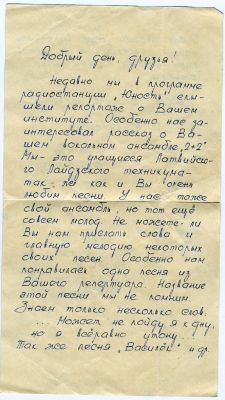 Добрый день, друзья!
Недавно мы в программе
радиостанции „Юность" слы-
шали репортаж о Вашем
институте. Особенно нас за-
интересовал рассказ о Ва-
шем вокальном ансамбле „2+2"
Мы - это учащиеся Латвийско-
го Лайдзского техникума-
так же как и Вы очень
любим песни. У нас тоже
свой ансамбль, но тот ещё
совсем молод. Не можете ли
Вы нам прислать слова и
главную мелодию некоторых
своих песен. Особенно нам
понравилась одна песня из
Вашего репертуара. Название
этой песни мы не помним.
Знаем только несколько слов.
... Может не пойду я к дну,
но я всёравно утону...!
Так же песня „Василёк" и др.